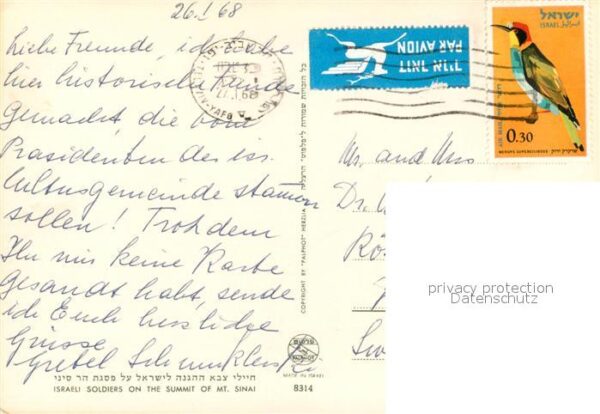 26.I 68
Liebe Freunde, ich habe
hier historische Funde
gemacht, die vom
Präsidenten des isr.
Cultusgemeinde stammen
sollen! Trotzdem
Ihr mir keine Karte
Gesandt habt, sende
ich Euch herzliche
Grüsse
Gretel
חיילי צבא ההגנה לישראל על פסגת הר סיני
ISRAELI SOLDIERS ON THE SUMMIT OF MT. SINAI
COPYRIGHT BY "PALPHOT" HERZLIA
כל הזכויות שמורות ל"פלפוט" הרצליה
PALPHOT
MADE IN ISRAEL
8314
דואר אויר
PAR AVION
ישראל
ISRAEL
AIR MAIL
0.30
-YAFO
Mr. and Mrs
Dr.
privacy protection
Datenschutz